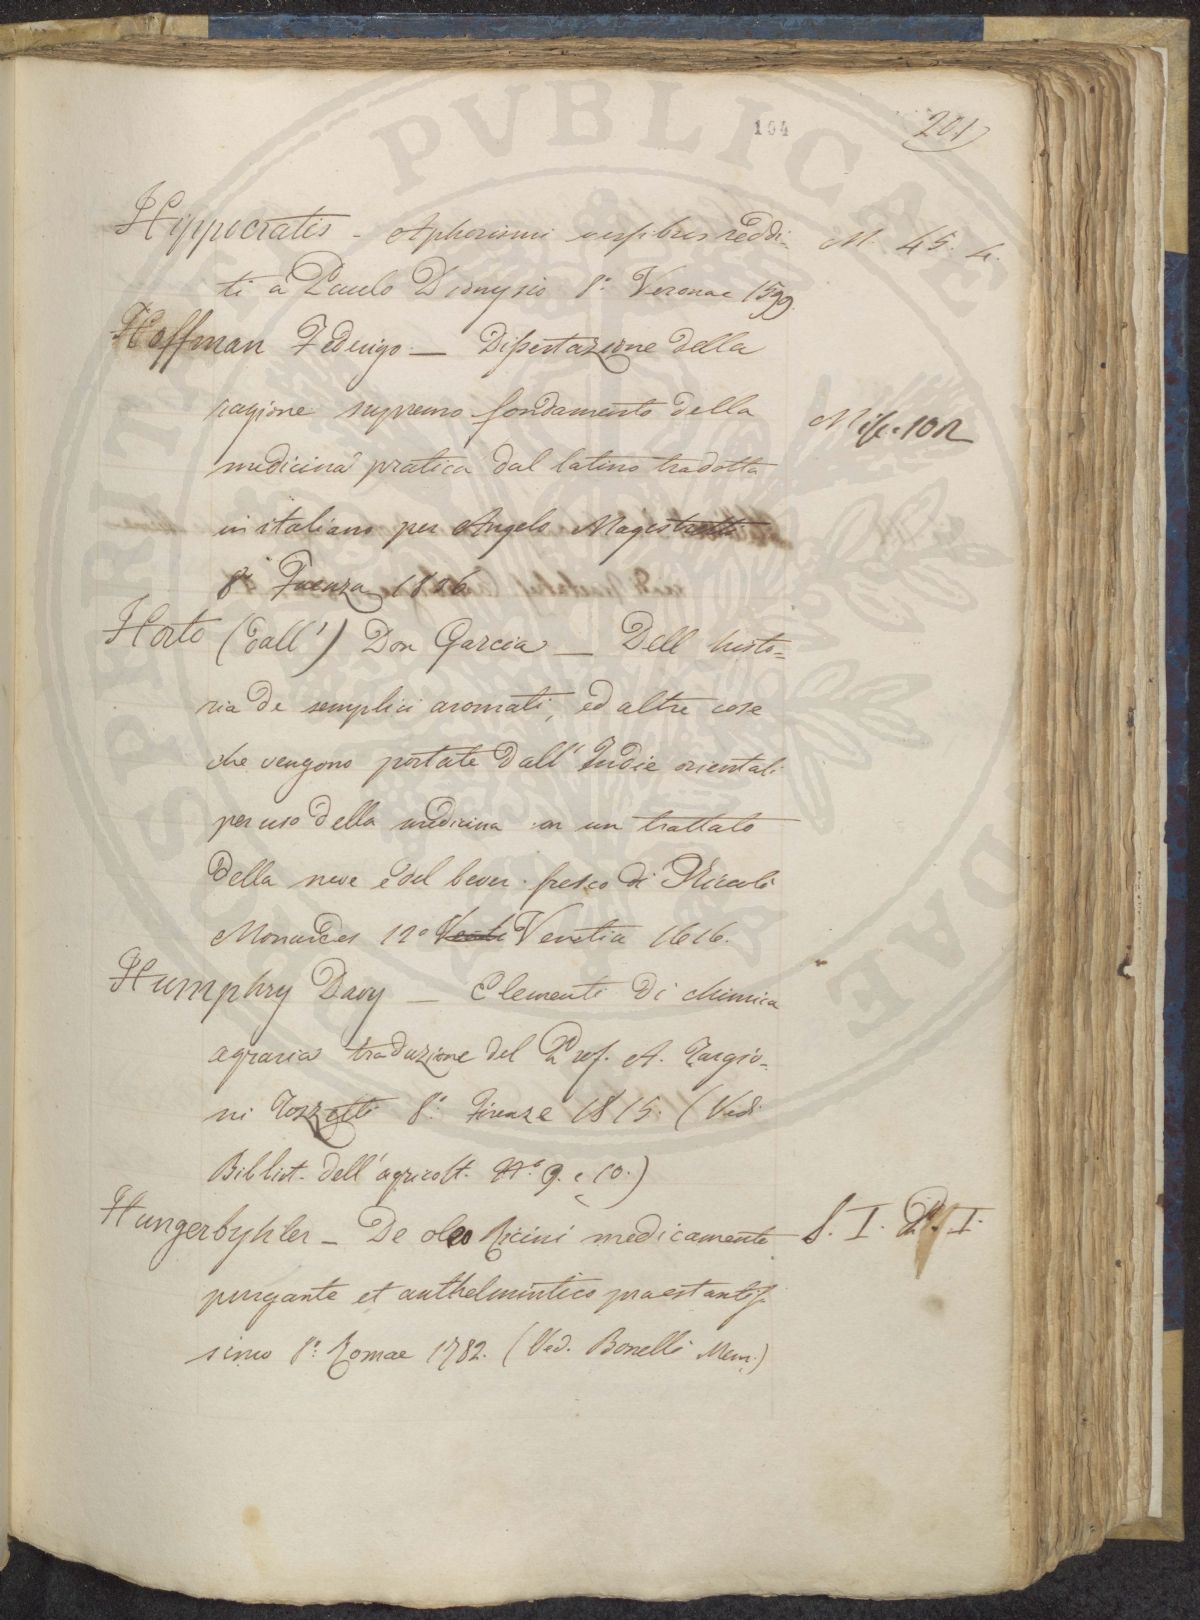 104
201
Hippocratis - Aphorismi versibus reddi- M. 45. 4.
ti a Paulo Dionysio 8.° Veronae 1599.
Hoffman Federigo — Dissertazione della
ragione supremo fondamento della Misc. 102
medicina pratica dal latino tradotta
in italiano per Angelo Magistretti
8.° Faenza 1826
Horto (dall') Don Garcia — Dell histo=
ria de semplici aromati, ed altre cose
che vengono portate dall' Indie orientali
per uso della medicina con un trattato
della neve e del bever fresco di Niccolò
Monardes 12° Venetia 1616.
Humphry Davy — Elementi di chimica
agraria traduzione del Prof. A. Targio=
ni Tozzetti 8.° Firenze 1815. (Vedi
Bibliot. dell' agricolt. N.° 9. e 10.)
Hungerbyhler - De oleo Ricini medicamente S. I. P. I.
purgante et anthelmintico praestantis-
simo 8.° Romae 1782. (Ved. Bonelli Mem.)
PERITATI PVBLICAE